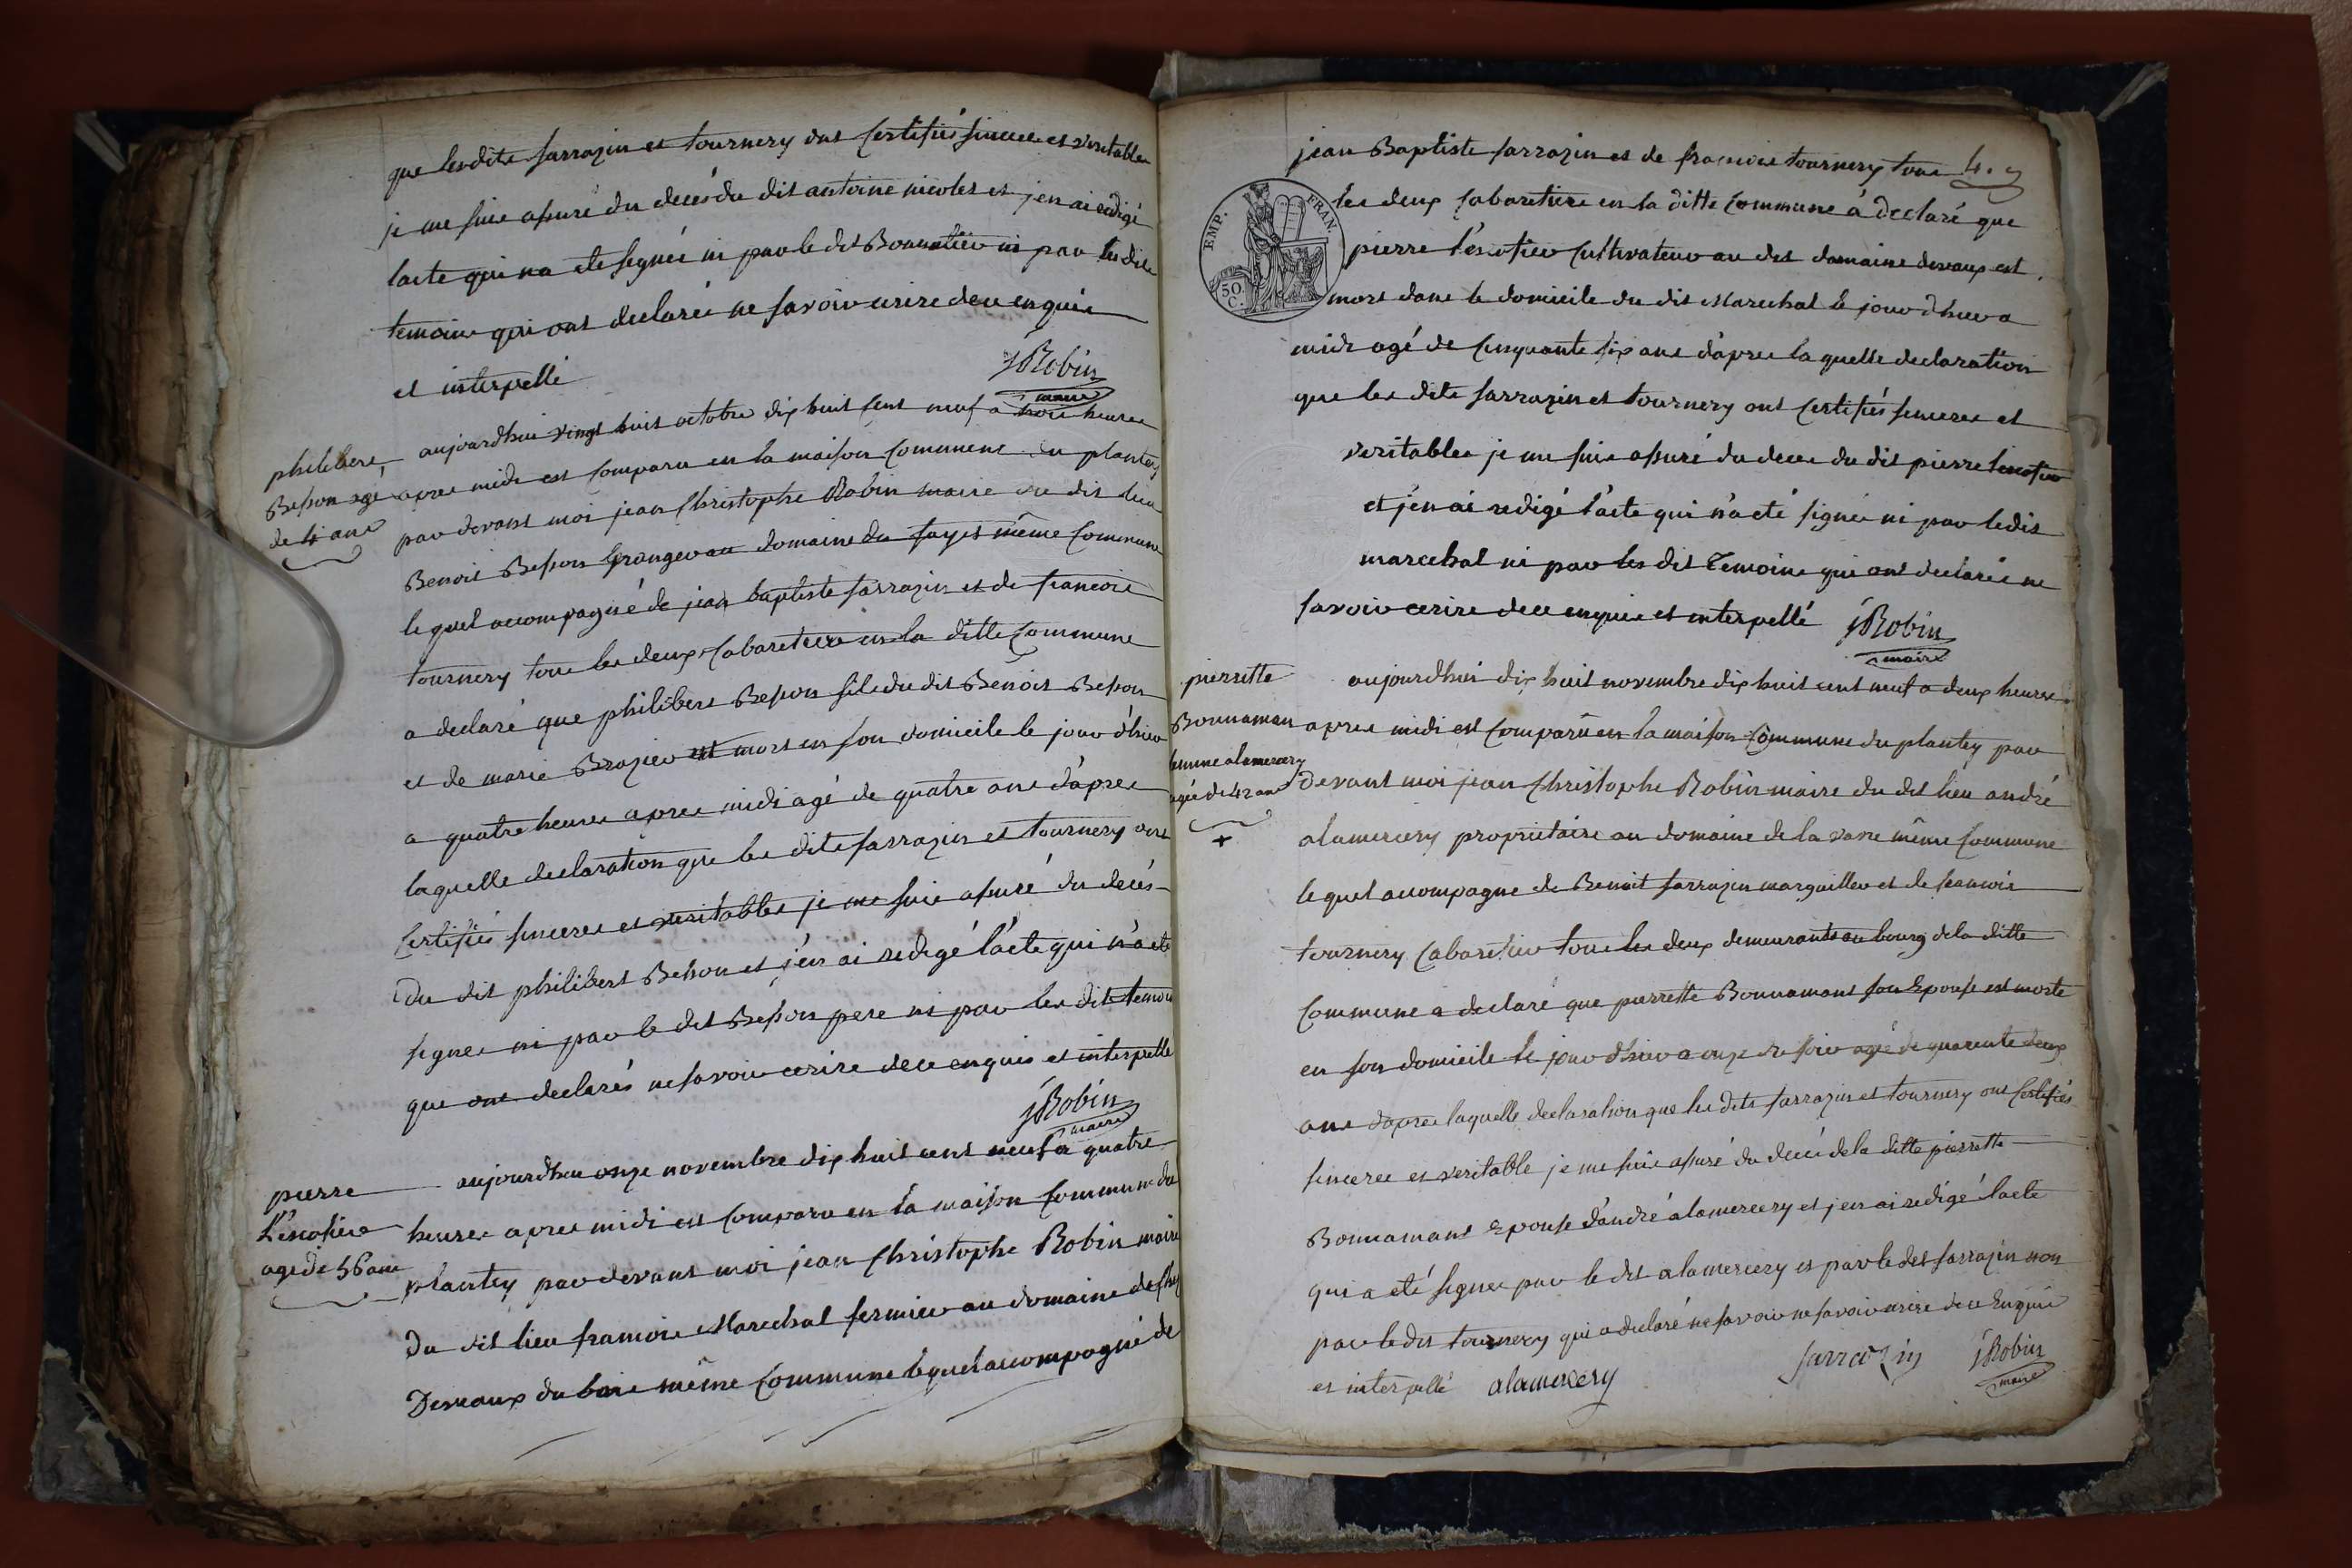 que lesdits sarrazin et tournery ont Certifiés sinceres et veritables
je me suis assuré du decés du dit antoine nicolet et j'en ai redigé
lacte qui na ete signée ni par le dit Bonnatier ni par les dits
temoins qui ont declarés ne savoir ecrire de ce enquis
et interpellé
JRobin
maire
philibert
Besson agé
de 4 ans
aujourdhui vingt huit octobre dix huit cent neuf a trois heures
apres midi est Comparu en la maison Commune du plantey
par devant moi jean Christophe Robin maire du dit lieu
Benoit Besson granger au domaine du fayet même Commune
lequel accompagné de jean baptiste sarrazin et de francois
tournery tous les deux Cabaretiers en la ditte Commune
a declaré que philibert Besson fils du dit Benoit Besson
et de marie Brazier est mort en son domicile le jour d'hier
a quatre heures apres midi agé de quatre ans d'apres
laquelle declaration que les dits sarrazin et tournery ont
Certifiés sinceres et veritables je me suis assuré du decés
du dit philibert Besson et j'en ai redigé l'acte qui n'a ete
signée ni par le dit Besson pere ni par les dits temoins
que ont declarés ne savoir ecrire de ce enquis et interpellé
JRobin
maire
pierre
agé de 56 ans
aujourdhui onze novembre dix huit cent neuf a quatre
heures apres midi est Comparu en la maison Commune du
plantey par devant moi jean Christophe Robin maire
du dit lieu francois Marechal fermier au domaine
Desvaux du bois même Commune lequel accompagné de
jean Baptiste sarrazin et de francois tournery tous 4.
EMP. FRAN.
50. C.
les deux Cabaretiers en la ditte Commune a declaré que
pierre cultivateur au dit domaine desvaux est
mort dans le domicile du dit Marechal le jour d'hier a
midi agé de Cinquante six ans d'apres la quelle declaration
que les dits sarrazin et tournery ont Certifiés sinceres et
veritables je me suis assuré du deces du dit pierre
et j'en ai redigé l'acte qui n'a eté signée ni par le dit
marechal ni par les dit Temoins qui ont declarés ne
savoir ecrire de ce enquis et interpellé
JRobin
maire
pierrette
Bonnamant
femme alamercery
agée de 42 ans
+
aujourdhui dix huit novembre dix huit cent neuf a deux heures
apres midi est Comparu en la maison Commune du plantey par
devant moi jean Christophe Robin maire du dit lieu andré
alamercery proprietaire au domaine de la même Commune
lequel accompagne de Benoit sarrazin marguiller et de francois
tournery Cabaretier tous les deux demeurants au bourg de la ditte
Commune a declaré que pierrette Bonnamant son Epouse est morte
en son domicile le jour d'hier a onze du soir agé de quarente deux
ans d'apres laquelle declaration que les dits sarrazin et tournery ont Certifiés
sinceres et veritable je me suis assuré du decés de la ditte pierrette
Bonnamant Epouse d'andré alamercery et j'en ai redigé l'acte
qui a eté signee par le dit alamercery et par le dit sarrazin non
par le dit tournery qui a declaré ne savoir ne savoir ecrire de ce Enquis
et interpellé alamercery sarrazin JRobin
maire